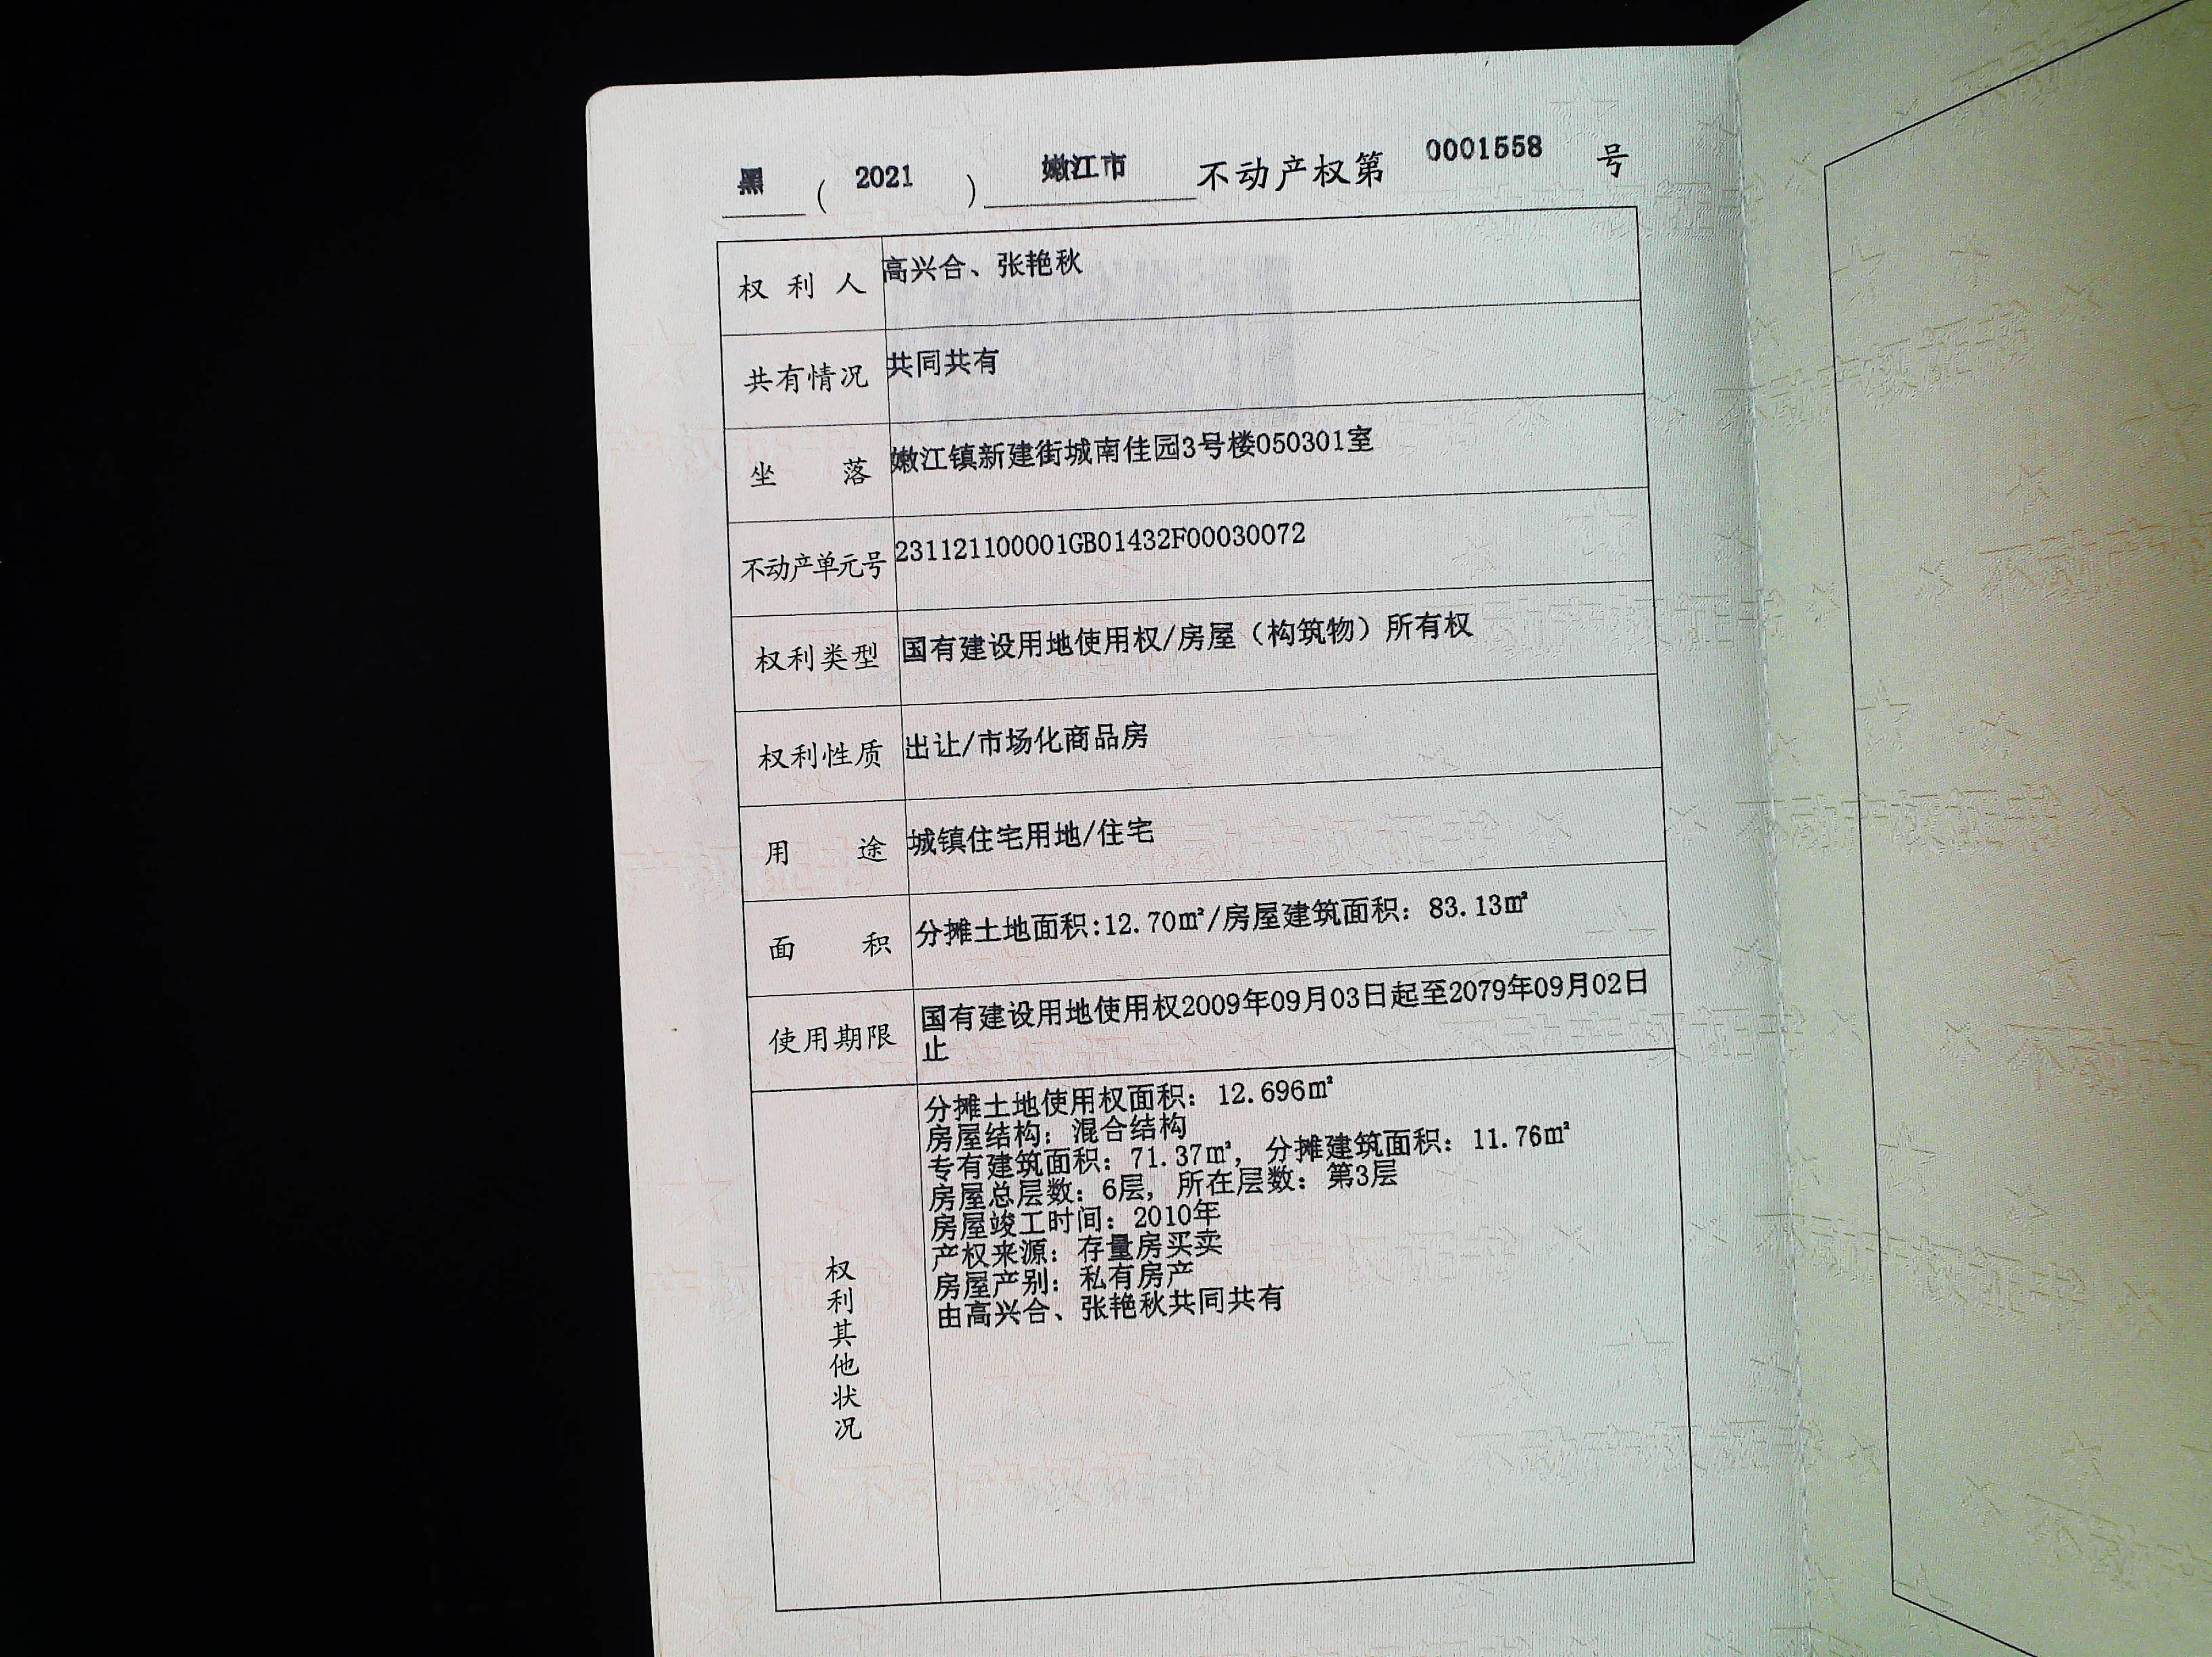 黑 ( 2021 ) 嫩江市 不动产权第 0001558 号
权利人 高兴合、张艳秋
共有情况 共同共有
坐落 嫩江镇新建街城南佳园3号楼050301室
不动产单元号 231121100001GB01432F00030072
权利类型 国有建设用地使用权/房屋（构筑物）所有权
权利性质 出让/市场化商品房
用途 城镇住宅用地/住宅
面积 分摊土地面积:12.70㎡/房屋建筑面积：83.13㎡
使用期限 国有建设用地使用权2009年09月03日起至2079年09月02日
止
权利其他状况
分摊土地使用权面积：12.696㎡
房屋结构：混合结构
专有建筑面积：71.37㎡，分摊建筑面积：11.76㎡
房屋总层数：6层，所在层数：第3层
房屋竣工时间：2010年
产权来源：存量房买卖
房屋产别：私有房产
由高兴合、张艳秋共同共有